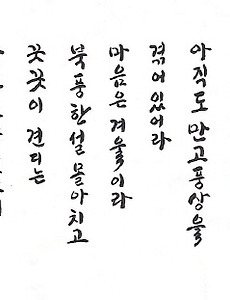 아직도 만고풍상을
겪어 있어라
마음은 겨울이라
북풍한설 몰아치고
꿋꿋이 견디는